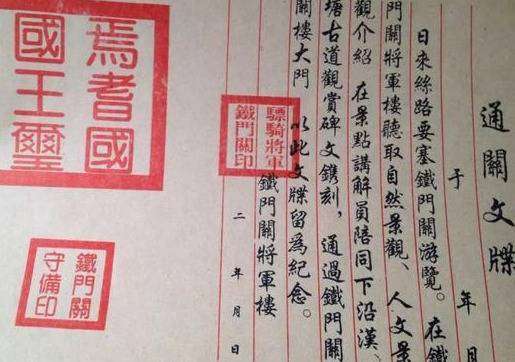 通關文牒
于　年
日來絲路要塞鐵門關游覽。在鐵
門關將軍樓聽取自然景觀、人文景
觀介紹 在景點講解員陪同下沿漢、
塘古道觀賞碑文鐫刻，通過鐵門關
關樓大門 以此文牒留為紀念。
鐵門關將軍樓
二 年 月 日
驃騎將軍
鐵門關印
焉耆國
國王璽
鐵門關
守備印